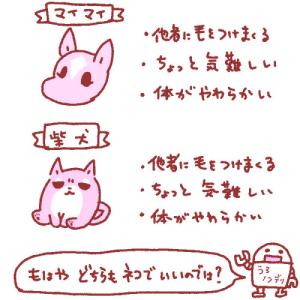 マイマイ
・他者に毛をつけまくる
・ちょっと気難しい
・体がやわらかい
柴犬
・他者に毛をつけまくる
・ちょっと気難しい
・体がやわらかい
もはや どちらもネコでいいのでは?
うろ
ノンデリ